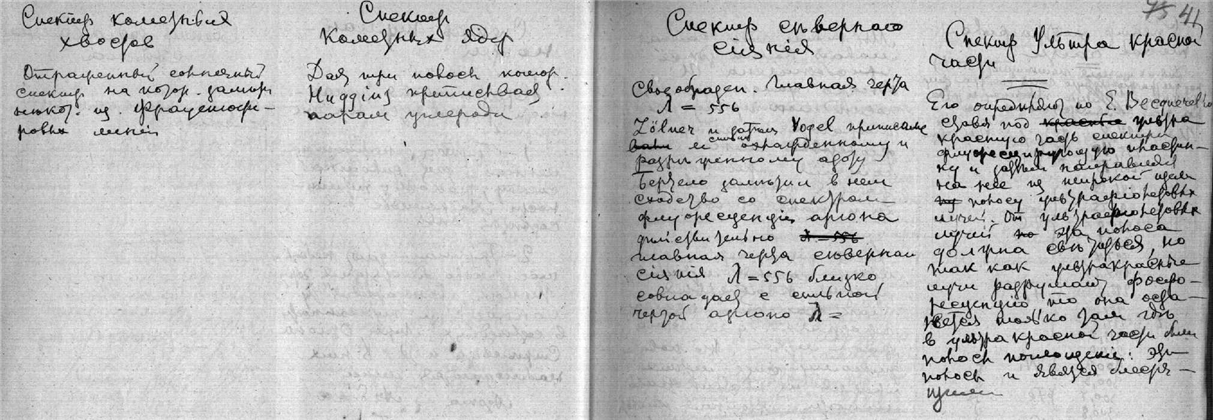 Спектр кометных
хвостов
Отраженный солнечный
спектр на котор. замет.
неког. из Фраунгофе-
ровых линий
Спектр
кометных ядер
Дал три полосы котор.
Huggins приписывает
парам углерода
75 41
Спектр северного
сияния
Своеобразен. Главная черта
λ = 556
Zölner и затем Vogel приписали
ее сильно охлажденному и
разреженному азоту
Бертело заметил в нем
сходство со спектром
флуоресценции аргона
действительно λ = 556
главная черта северного
сияния λ = 556 близко
совпадает с сильной
чертой аргона λ =
Спектр Ультра красной
части
Его определяют по E. Becquerel'ю
ставя под красные ультра
красную часть спектра
флуоресцирующую пластин-
ку и затем направляя
на нее из широкой щели
полосу ультрафиолетовых
лучей. От ультрафиолетовых
лучей эта полоса
должна светиться, но
так как ультракрасные
лучи разрушают фосфо-
ресценцию то она оста-
нется только там где
в ультра красной части были
полосы поглощения: эти
полосы и явятся блестя-
щими